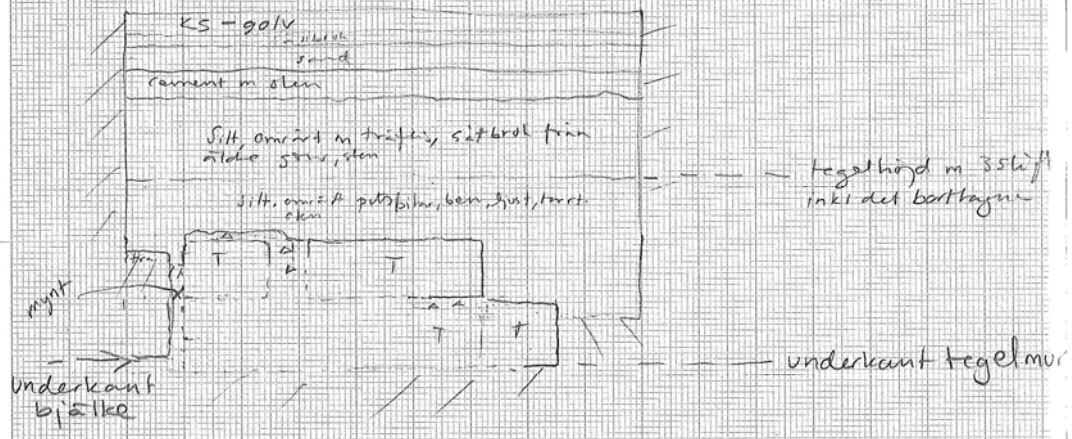 KS-golv
sättbruk
sand
cement m sten
Silt, omrört m träflis, sättbruk från
äldre golv, sten
silt, omrört putsbitar, ben, ljust, torrt.
sten
tegelhöjd m 3 skift
inkl det borttagna
trä
T
T
mynt
T
T
underkant tegelmur
underkant
bjälke